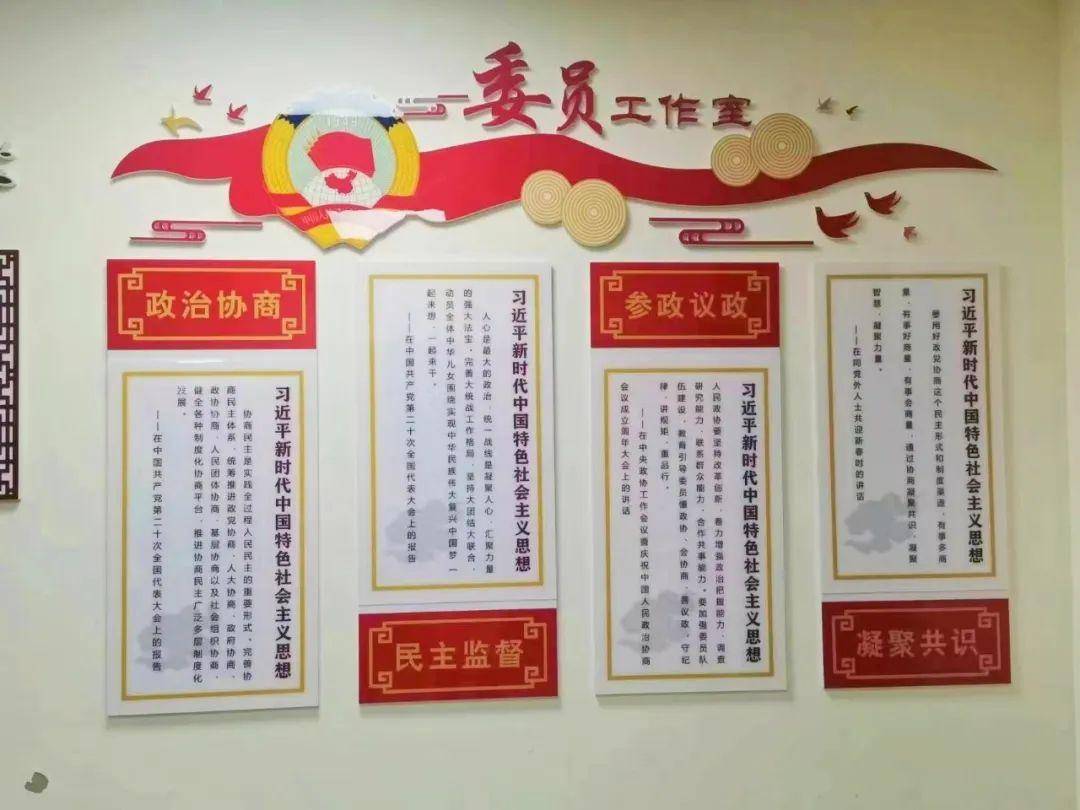 委员工作室
政治协商
习近平新时代中国特色社会主义思想
协商民主是实践全过程人民民主的重要形式。完善协
商民主体系，统筹推进政党协商、人大协商、政府协商、
政协协商、人民团体协商、基层协商以及社会组织协商，
健全各种制度化协商平台，推进协商民主广泛多层制度化
发展。
——在中国共产党第二十次全国代表大会上的报告
习近平新时代中国特色社会主义思想
人心是最大的政治，统一战线是凝聚人心、汇聚力量
的强大法宝。完善大统战工作格局，坚持大团结大联合，
动员全体中华儿女围绕实现中华民族伟大复兴中国梦一
起来想、一起来干。
——在中国共产党第二十次全国代表大会上的报告
民主监督
参政议政
习近平新时代中国特色社会主义思想
人民政协要坚持改革创新，着力增强政治把握能力、调查
研究能力、联系群众能力、合作共事能力。要加强委员队
伍建设，教育引导委员懂政协、会协商、善议政，守纪
律、讲规矩、重品行。
——在中央政协工作会议暨庆祝中国人民政治协商
会议成立周年大会上的讲话
习近平新时代中国特色社会主义思想
要用好政党协商这个民主形式和制度渠道，有事多商
量、有事好商量、有事会商量，通过协商凝聚共识、凝聚
智慧、凝聚力量。
——在同党外人士共迎新春时的讲话
凝聚共识